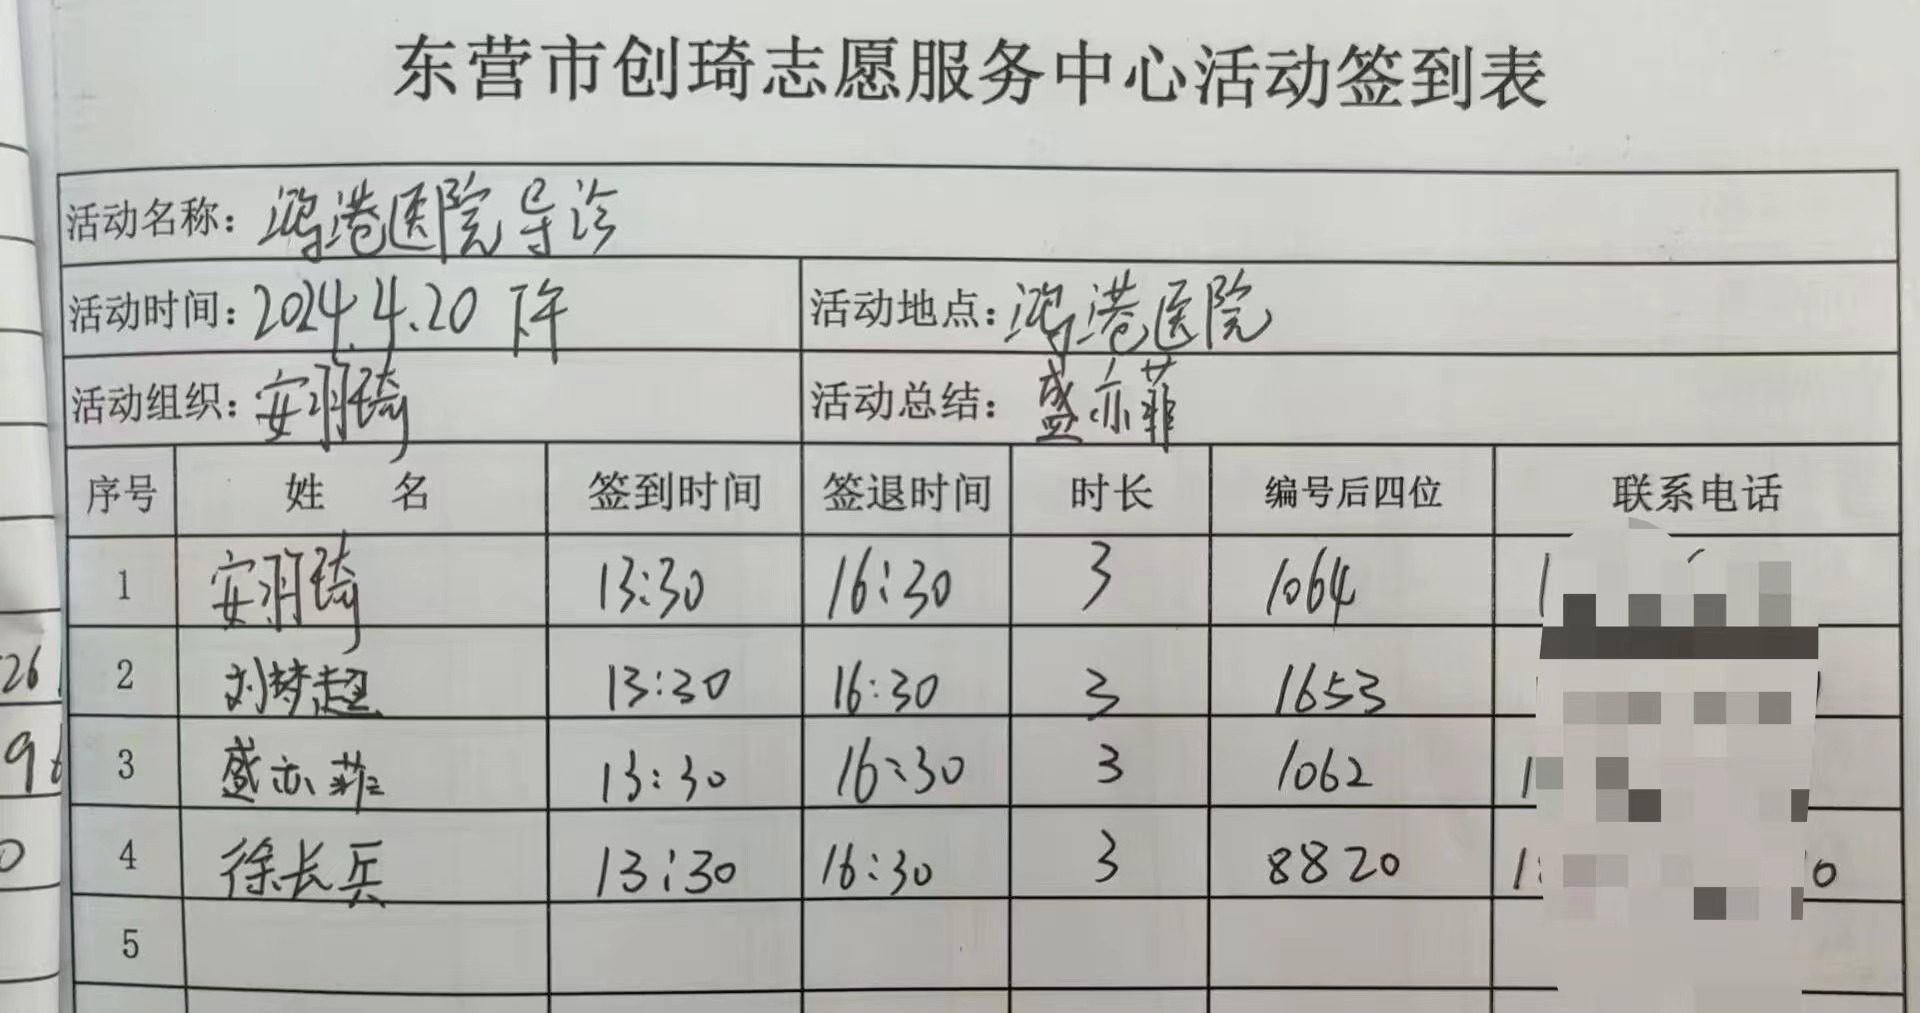 东营市创琦志愿服务中心活动签到表
活动名称：鸿港医院导诊
活动时间：2024.4.20 下午 活动地点：鸿港医院
活动组织：安羽琦 活动总结：盛亦菲
序号 姓 名 签到时间 签退时间 时长 编号后四位 联系电话
1 安羽琦 13:30 16:30 3 1064 1
2 刘梦超 13:30 16:30 3 1653
3 盛亦菲 13:30 16:30 3 1062 1
4 徐长兵 13:30 16:30 3 8820 1 0
5
26
9
0